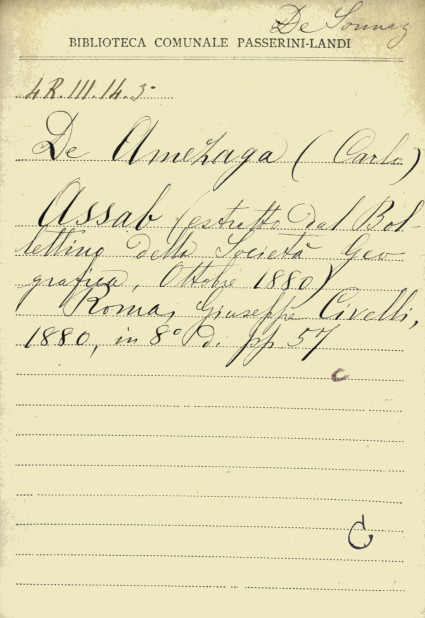 De Sonnaz
BIBLIOTECA COMUNALE PASSERINI-LANDI
4R.III.14.5
De Amezaga (Carlo)
Assab (estratto dal Bol-
lettino della Società Geo
grafica, Ottobre 1880)
Roma, Giuseppe Civelli,
1880, in 8° d. pp 57
C
C